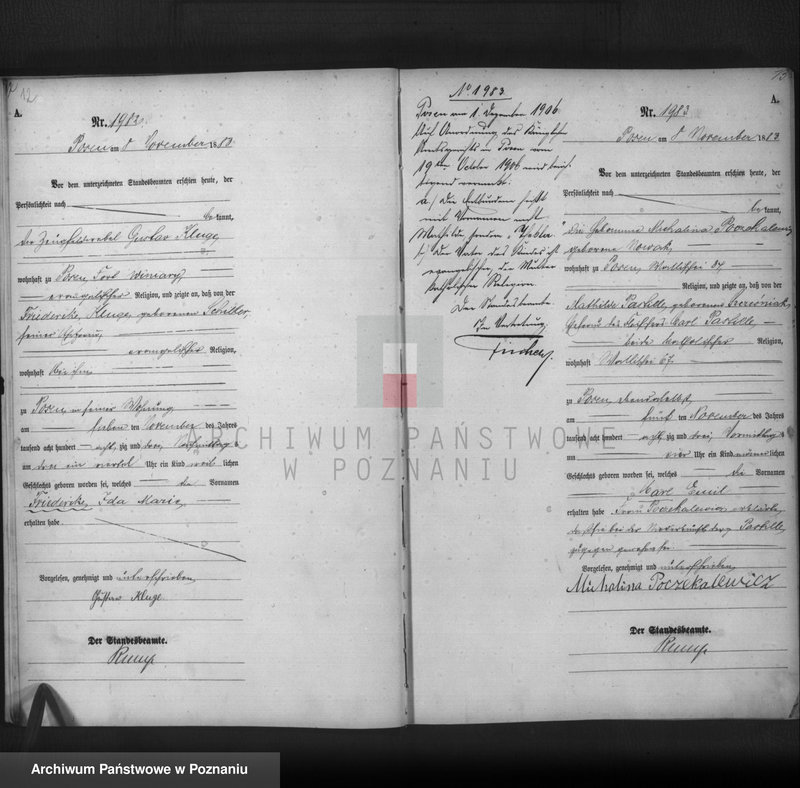 12
A.
Nr. 1982.
Posen am 8 November 1883.
Vor dem unterzeichneten Standesbeamten erschien heute, der
Persönlichkeit nach
be kannt,
der Zeugfeldwebel Gustav Kluge,
wohnhaft zu Posen, Fort Winiary,
evangelischer Religion, und zeigte an, daß von der
Friederike Kluge, geborenen Schiller,
seiner Ehefrau,
evangelischer Religion,
wohnhaft bei ihm
zu Posen in seiner Wohnung,
am sieben ten November des Jahres
tausend acht hundert acht zig und drei, Vormittags
um drei ein viertel Uhr ein Kind weib lichen
Geschlechts geboren worden sei, welches die Vornamen
Friederike, Ida Marie
erhalten habe
Vorgelesen, genehmigt und unterschrieben
Gustav Kluge
Der Standesbeamte.
Rump
No 1983
Posen am 1. Dezember 1906.
Auf Anordnung des Königlichen
Amtsgerichts in Posen vom
19ten October 1906 wird
vermerkt:
a.)
mit Vornamen nicht
Mathilde, sondern
Der Vater des Kindes ist
evangelischer, die Mutter
katholischer Religion.
Der Standesbeamte
In Vertretung:
13
A.
Nr. 1983
Posen am 8 November 1883
Vor dem unterzeichneten Standesbeamten erschien heute, der
Persönlichkeit nach
be kannt,
die Hebamme Michalina Poczekalewicz
geborene Nowak,
wohnhaft zu Posen, Wallischei 37,
Religion, und zeigte an, daß von der
Mathilde Pastille, geborenen
Ehefrau des Carl Pastille,
beide katholischer Religion,
wohnhaft Wallischei 67.
zu Posen, daselbst,
am fünf ten November des Jahres
tausend acht hundert acht zig und drei, Vormittags
um vier Uhr ein Kind männ lichen
Geschlechts geboren worden sei, welches die Vornamen
Carl Emil
erhalten habe Frau Poczekalewicz erklärte,
daß sie bei der Niederkunft der Pastille
zugegen gewesen sei.
Vorgelesen, genehmigt und unterschrieben
Michalina Poczekalewicz
Der Standesbeamte.
Rump
ARCHIWUM PAŃSTWOWE
W POZNANIU
Archiwum Państwowe w Poznaniu